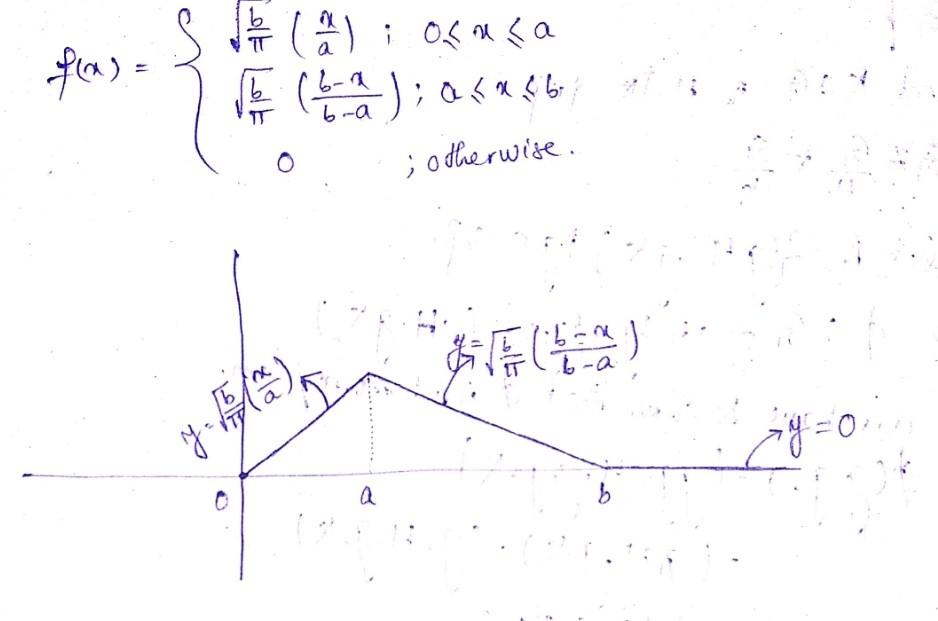 f(x) = { √(b/π) (x/a) ; 0 ≤ x ≤ a
√(b/π) (b-x/b-a) ; a ≤ x ≤ b
0 ; otherwise.
y = √(b/π) (b-x/b-a)
y = √(b/π) (x/a)
y = 0
0 a b